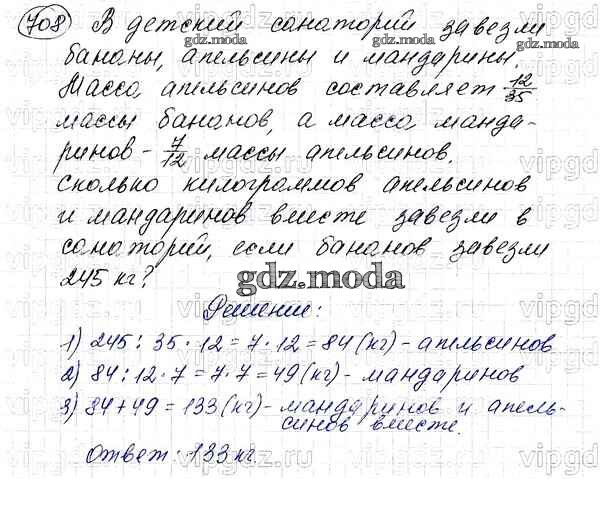 708) В детский санаторий завезли
gdz.moda gdz.moda
бананы, апельсины и мандарины.
Масса апельсинов составляет 12/35
массы бананов, а масса манда-
ринов - 7/12 массы апельсинов.
Сколько килограммов апельсинов
и мандаринов вместе завезли в
санаторий, если бананов завезли
245 кг?
gdz.moda
Решение:
1) 245 : 35 · 12 = 7 · 12 = 84 (кг) - апельсинов
2) 84 : 12 · 7 = 7 · 7 = 49 (кг) - мандаринов
3) 84 + 49 = 133 (кг) - мандаринов и апель-
синов вместе.
Ответ: 133 кг.